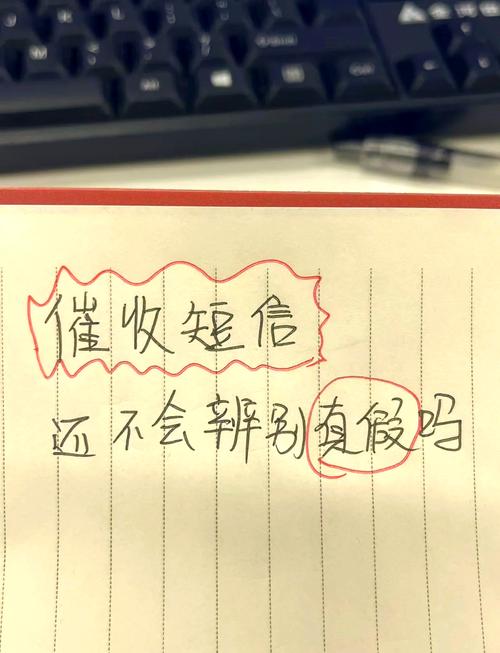 催收短信
还不会辨别真假吗